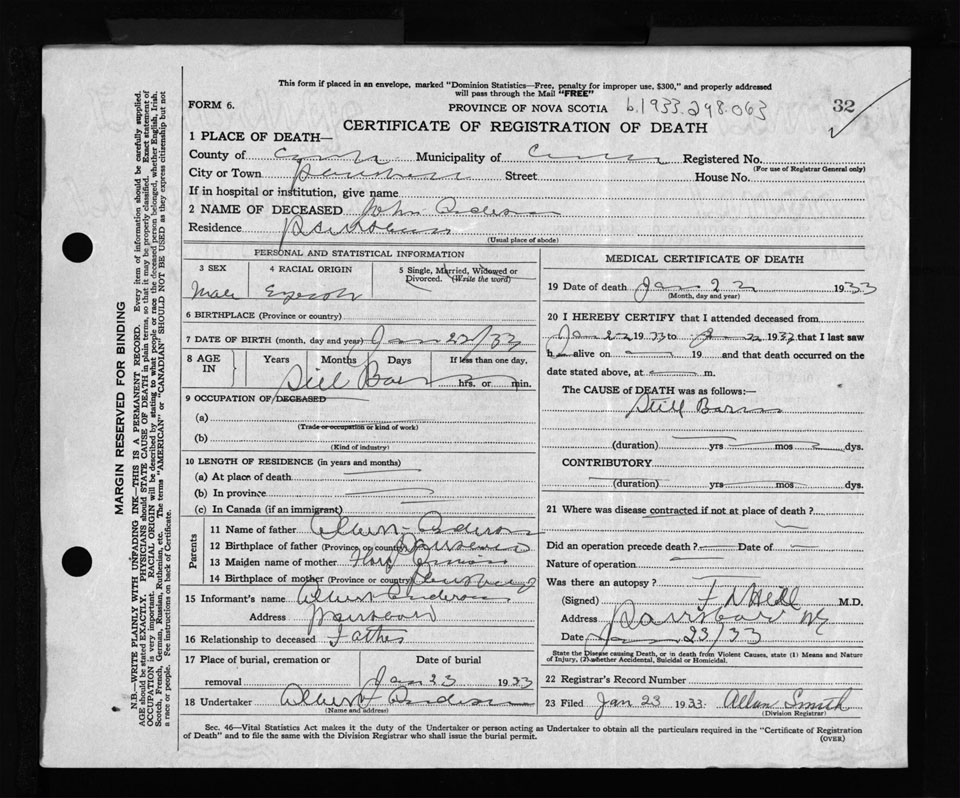 This form if placed in an envelope, marked "Dominion Statistics—Free, penalty for improper use, $300," and properly addressed
will pass through the Mail "FREE"
FORM 6. PROVINCE OF NOVA SCOTIA b.1933.298.063 32
CERTIFICATE OF REGISTRATION OF DEATH
1 PLACE OF DEATH—
County of Municipality of Registered No.
(For use of Registrar General only)
City or Town Street House No.
If in hospital or institution, give name
2 NAME OF DECEASED John Anderson
Residence Parrsboro
(Usual place of abode)
PERSONAL AND STATISTICAL INFORMATION
3 SEX 4 RACIAL ORIGIN 5 Single, Married, Widowed or
Divorced. (Write the word)
Male English
6 BIRTHPLACE (Province or country)
7 DATE OF BIRTH (month, day and year) Jan 22/33
8 AGE IN Years Months Days If less than one day,
Still Born hrs. or min.
9 OCCUPATION OF DECEASED
(a)
(Trade or occupation or kind of work)
(b)
(Kind of industry)
10 LENGTH OF RESIDENCE (in years and months)
(a) At place of death
(b) In province
(c) In Canada (if an immigrant)
Parents
11 Name of father Albert Anderson
12 Birthplace of father (Province or country) Parrsboro
13 Maiden name of mother
14 Birthplace of mother (Province or country)
15 Informant's name Albert Anderson
Address Parrsboro
16 Relationship to deceased Father
17 Place of burial, cremation or Date of burial
removal Jan 23 1933
18 Undertaker Albert Anderson
(Name and address)
MEDICAL CERTIFICATE OF DEATH
19 Date of death Jan 22 1933
(Month, day and year)
20 I HEREBY CERTIFY that I attended deceased from
Jan 22 1933 to Jan 22 1933 that I last saw
h alive on 19 and that death occurred on the
date stated above, at m.
The CAUSE of DEATH was as follows:—
Still Born
(duration) yrs mos dys.
CONTRIBUTORY
(duration) yrs mos dys.
21 Where was disease contracted if not at place of death?
Did an operation precede death? Date of
Nature of operation
Was there an autopsy?
(Signed) M.D.
Address Parrsboro NS
Date Jan 23/33
State the Disease causing Death, or in death from Violent Causes, state (1) Means and Nature
of Injury, (2) whether Accidental, Suicidal or Homicidal.
22 Registrar's Record Number
23 Filed Jan 23 1933. Allan Smith
(Division Registrar)
Sec. 46—Vital Statistics Act makes it the duty of the Undertaker or person acting as Undertaker to obtain all the particulars required in the "Certificate of Registration
of Death" and to file the same with the Division Registrar who shall issue the burial permit. (OVER)
MARGIN RESERVED FOR BINDING
N.B.—WRITE PLAINLY WITH UNFADING INK—THIS IS A PERMANENT RECORD. Every item of information should be carefully supplied.
AGE should be stated EXACTLY. PHYSICIANS should STATE CAUSE OF DEATH in plain terms, so that it may be properly classified. Exact statement of
OCCUPATION is very important. RACIAL ORIGIN will be described by stating to what people or race the deceased person belonged, whether English, Irish,
Scotch, French, German, Russian, Ruthenian, etc. The terms "AMERICAN" or "CANADIAN" SHOULD NOT BE USED as they express citizenship but not
a race or people. See instructions on back of Certificate.